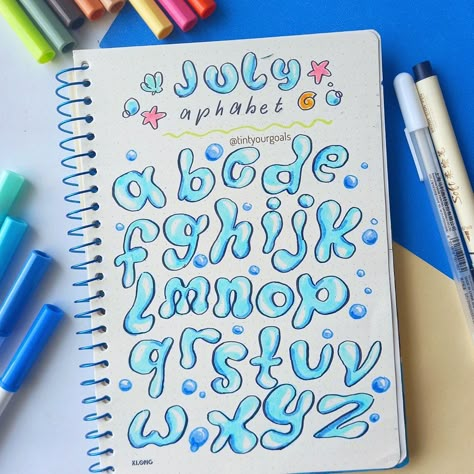 July
aphabet
@tintyourgoals
abcde
fghijk
lmnop
qrstuv
wxyz
KLONG